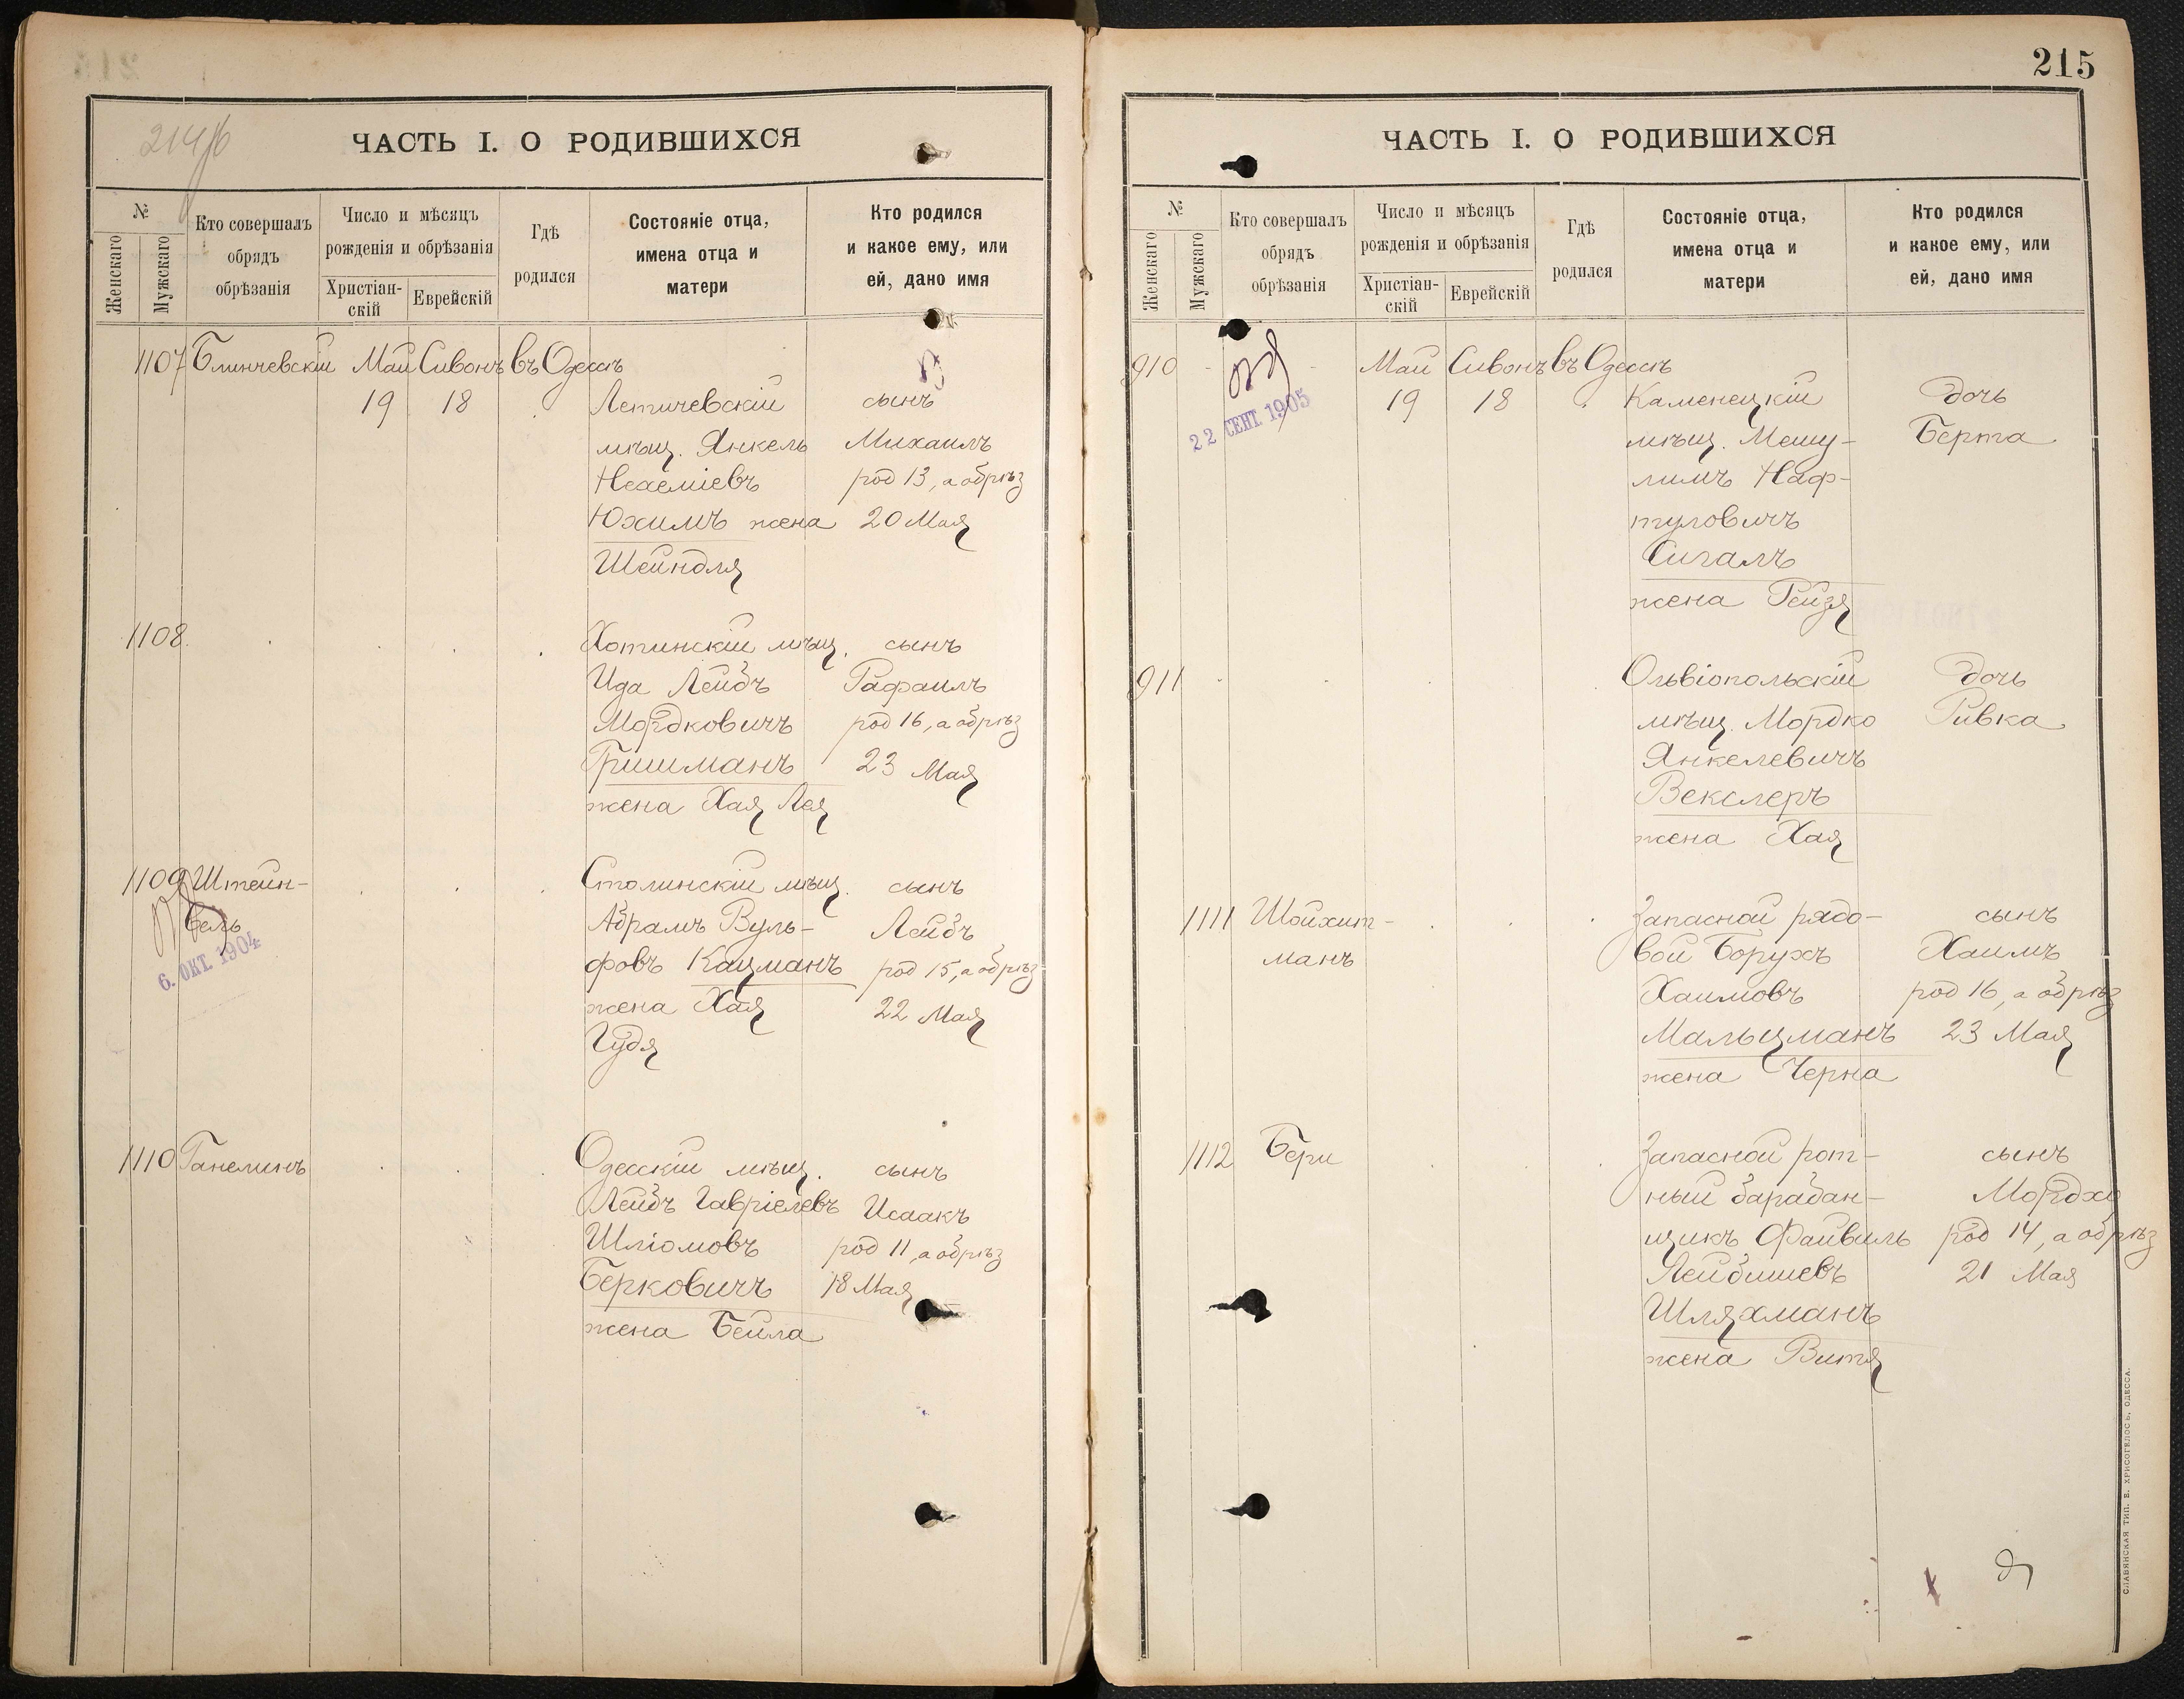 214 об
ЧАСТЬ I. О РОДИВШИХСЯ
№
Женскаго
Мужскаго
Кто совершалъ
обрядъ
обрѣзанія
Число и мѣсяцъ
рожденія и обрѣзанія
Христіан-
скій
Еврейскій
Гдѣ
родился
Состояніе отца,
имена отца и
матери
Кто родился
и какое ему, или
ей, дано имя
1107 Блинчевскій Май Сивонъ въ Одессѣ
19 18 Летичевскій сынъ
мѣщ. Янкель Михаилъ
Нехеміевъ род 13, а обрѣз
Юхимъ жена 20 Мая
Шейндля
1108 Хотинскій мѣщ. сынъ
Ида Лейбъ Рафаилъ
Мордковичъ род 16, а обрѣз
Гришманъ 23 Мая
жена Хая Лея
1109 Штейн- Столинскій мѣщ. сынъ
бель Абрамъ Вуль- Лейбъ
6. ОКТ. 1904
фовъ Кацманъ род 15, а обрѣз
жена Хая 22 Мая
Гудя
1110 Ганелинъ Одесскій мѣщ. сынъ
Лейбъ Гавріелевъ Исаакъ
Шліомовъ род 11, а обрѣз
Берковичъ 18 Мая
жена Бейла
215
ЧАСТЬ I. О РОДИВШИХСЯ
№
Женскаго
Мужскаго
Кто совершалъ
обрядъ
обрѣзанія
Число и мѣсяцъ
рожденія и обрѣзанія
Христіан-
скій
Еврейскій
Гдѣ
родился
Состояніе отца,
имена отца и
матери
Кто родился
и какое ему, или
ей, дано имя
910 Май Сивонъ въ Одессѣ
22 СЕНТ. 1905
19 18 Каменецкій дочь
мѣщ. Мешу- Берта
лимъ Наф-
туловичъ
Сигалъ
жена Рейзя
911 Ольвіопольскій дочь
мѣщ. Мордко Ривка
Янкелевичъ
Векслеръ
жена Хая
1111 Шойхит- Запасной рядо- сынъ
манъ вой Борухъ Хаимъ
Хаимовъ род 16, а обрѣз
Мальцманъ 23 Мая
жена Черна
1112 Бери Запасной рот- сынъ
ный барабан- Мордхо
щикъ Файвиль род 14, а обрѣз
Лейбишевъ 21 Мая
Шляхманъ
жена Витя
СЛАВЯНСКАЯ ТИП. В. ХРИСОГЕЛОСЪ, ОДЕССА.